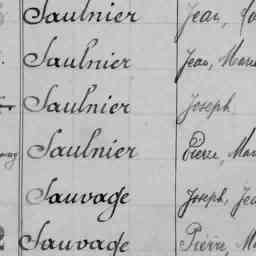 Saulnier Jean,
Saulnier Jean, Marie
Saulnier Joseph
Saulnier Pierre, Mar
Sauvage Joseph, Jea
Sauvage Pierre, M